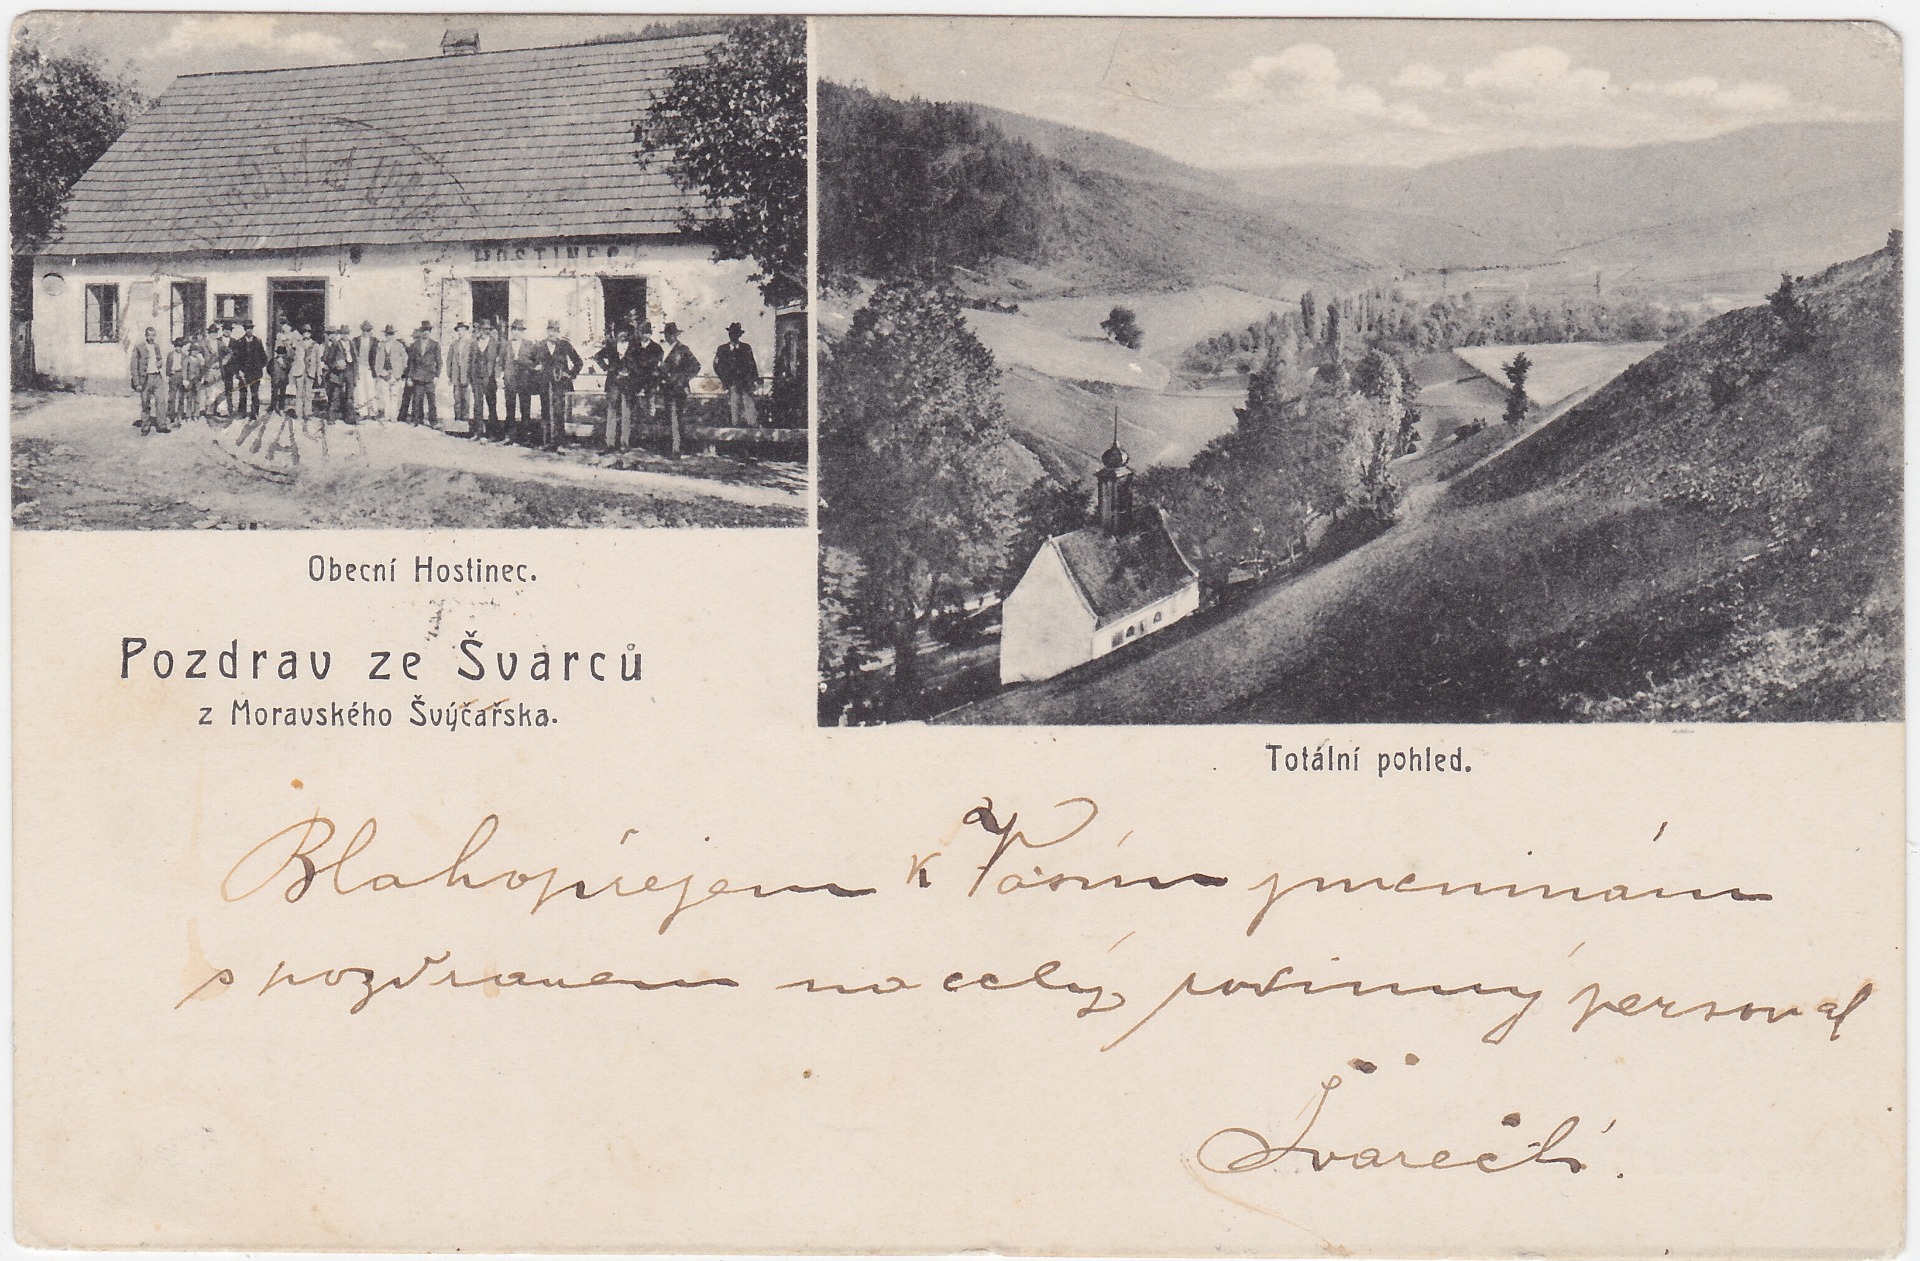 HOSTINEC
Obecní Hostinec.
Pozdrav ze Švarců
z Moravského Švýčařska.
Totální pohled.
Blahopřejem k Vašim jmeninám
s pozdravem na celý rodinný personal